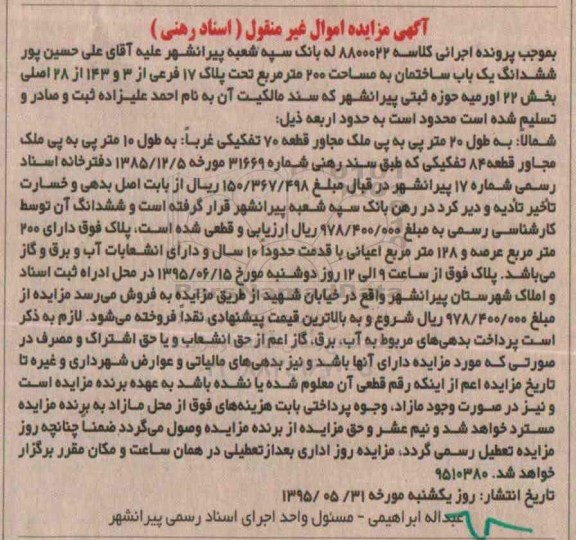 آگهی مزایده اموال غیر منقول ( اسناد رهنی )
بموجب پرونده اجرائی کلاسه ۸۸۰۰۰۲۲ له بانک سپه شعبه پیرانشهر علیه آقای علی حسین پور
ششدانگ یک باب ساختمان به مساحت ۲۰۰ مترمربع تحت پلاک ۱۷ فرعی از ۳ و ۱۴۳ از ۲۸ اصلی
بخش ۲۲ اورمیه حوزه ثبتی پیرانشهر که سند مالکیت آن به نام احمد علیزاده ثبت و صادر و
تسلیم شده است محدود است به حدود اربعه ذیل:
شمالا: به طول ۲۰ متر پی به پی ملک مجاور قطعه ۷۰ تفکیکی غرباً: به طول ۱۰ متر پی به پی ملک
مجاور قطعه۸۴ تفکیکی که طبق سند رهنی شماره ۳۱۶۶۹ مورخه ۱۳۸۵/۱۲/۵ دفترخانه اسناد
رسمی شماره ۱۷ پیرانشهر در قبال مبلغ ۱۵۰/۳۶۷/۴۹۸ ریال از بابت اصل بدهی و خسارت
تأخیر تأدیه و دیر کرد در رهن بانک سپه شعبه پیرانشهر قرار گرفته است و ششدانگ آن توسط
کارشناسی رسمی به مبلغ ۹۷۸/۴۰۰/۰۰۰ ریال ارزیابی و قطعی شده است، پلاک فوق دارای ۲۰۰
متر مربع عرصه و ۱۲۸ متر مربع اعیانی با قدمت حدودا ۱۰ سال و دارای انشعابات آب و برق و گاز
می‌باشد. پلاک فوق از ساعت ۹ الی ۱۲ روز دوشنبه مورخ ۱۳۹۵/۰۶/۱۵ در محل ادراه ثبت اسناد
و املاک شهرستان پیرانشهر واقع در خیابان شهید از طریق مزایده به فروش می‌رسد مزایده از
مبلغ ۹۷۸/۴۰۰/۰۰۰ ریال شروع و به بالاترین قیمت پیشنهادی نقدا فروخته می‌شود. لازم به ذکر
است پرداخت بدهی‌های مربوط به آب، برق، گاز اعم از حق انشعاب و یا حق اشتراک و مصرف در
صورتی که مورد مزایده دارای آنها باشد و نیز بدهی‌های مالیاتی و عوارض شهرداری و غیره تا
تاریخ مزایده اعم از اینکه رقم قطعی آن معلوم شده یا نشده باشد به عهده برنده مزایده است
و نیز در صورت وجود مازاد، وجوه پرداختی بابت هزینه‌های فوق از محل مازاد به برنده مزایده
مسترد خواهد شد و نیم عشر و حق مزایده از برنده مزایده وصول می‌گردد ضمنا چنانچه روز
مزایده تعطیل رسمی گردد، مزایده روز اداری بعدازتعطیلی در همان ساعت و مکان مقرر برگزار
خواهد شد. ۹۵۱۰۳۸۰
تاریخ انتشار: روز یکشنبه مورخه ۳۱/ ۰۵/ ۱۳۹۵
عبداله ابراهیمی - مسئول واحد اجرای اسناد رسمی پیرانشهر